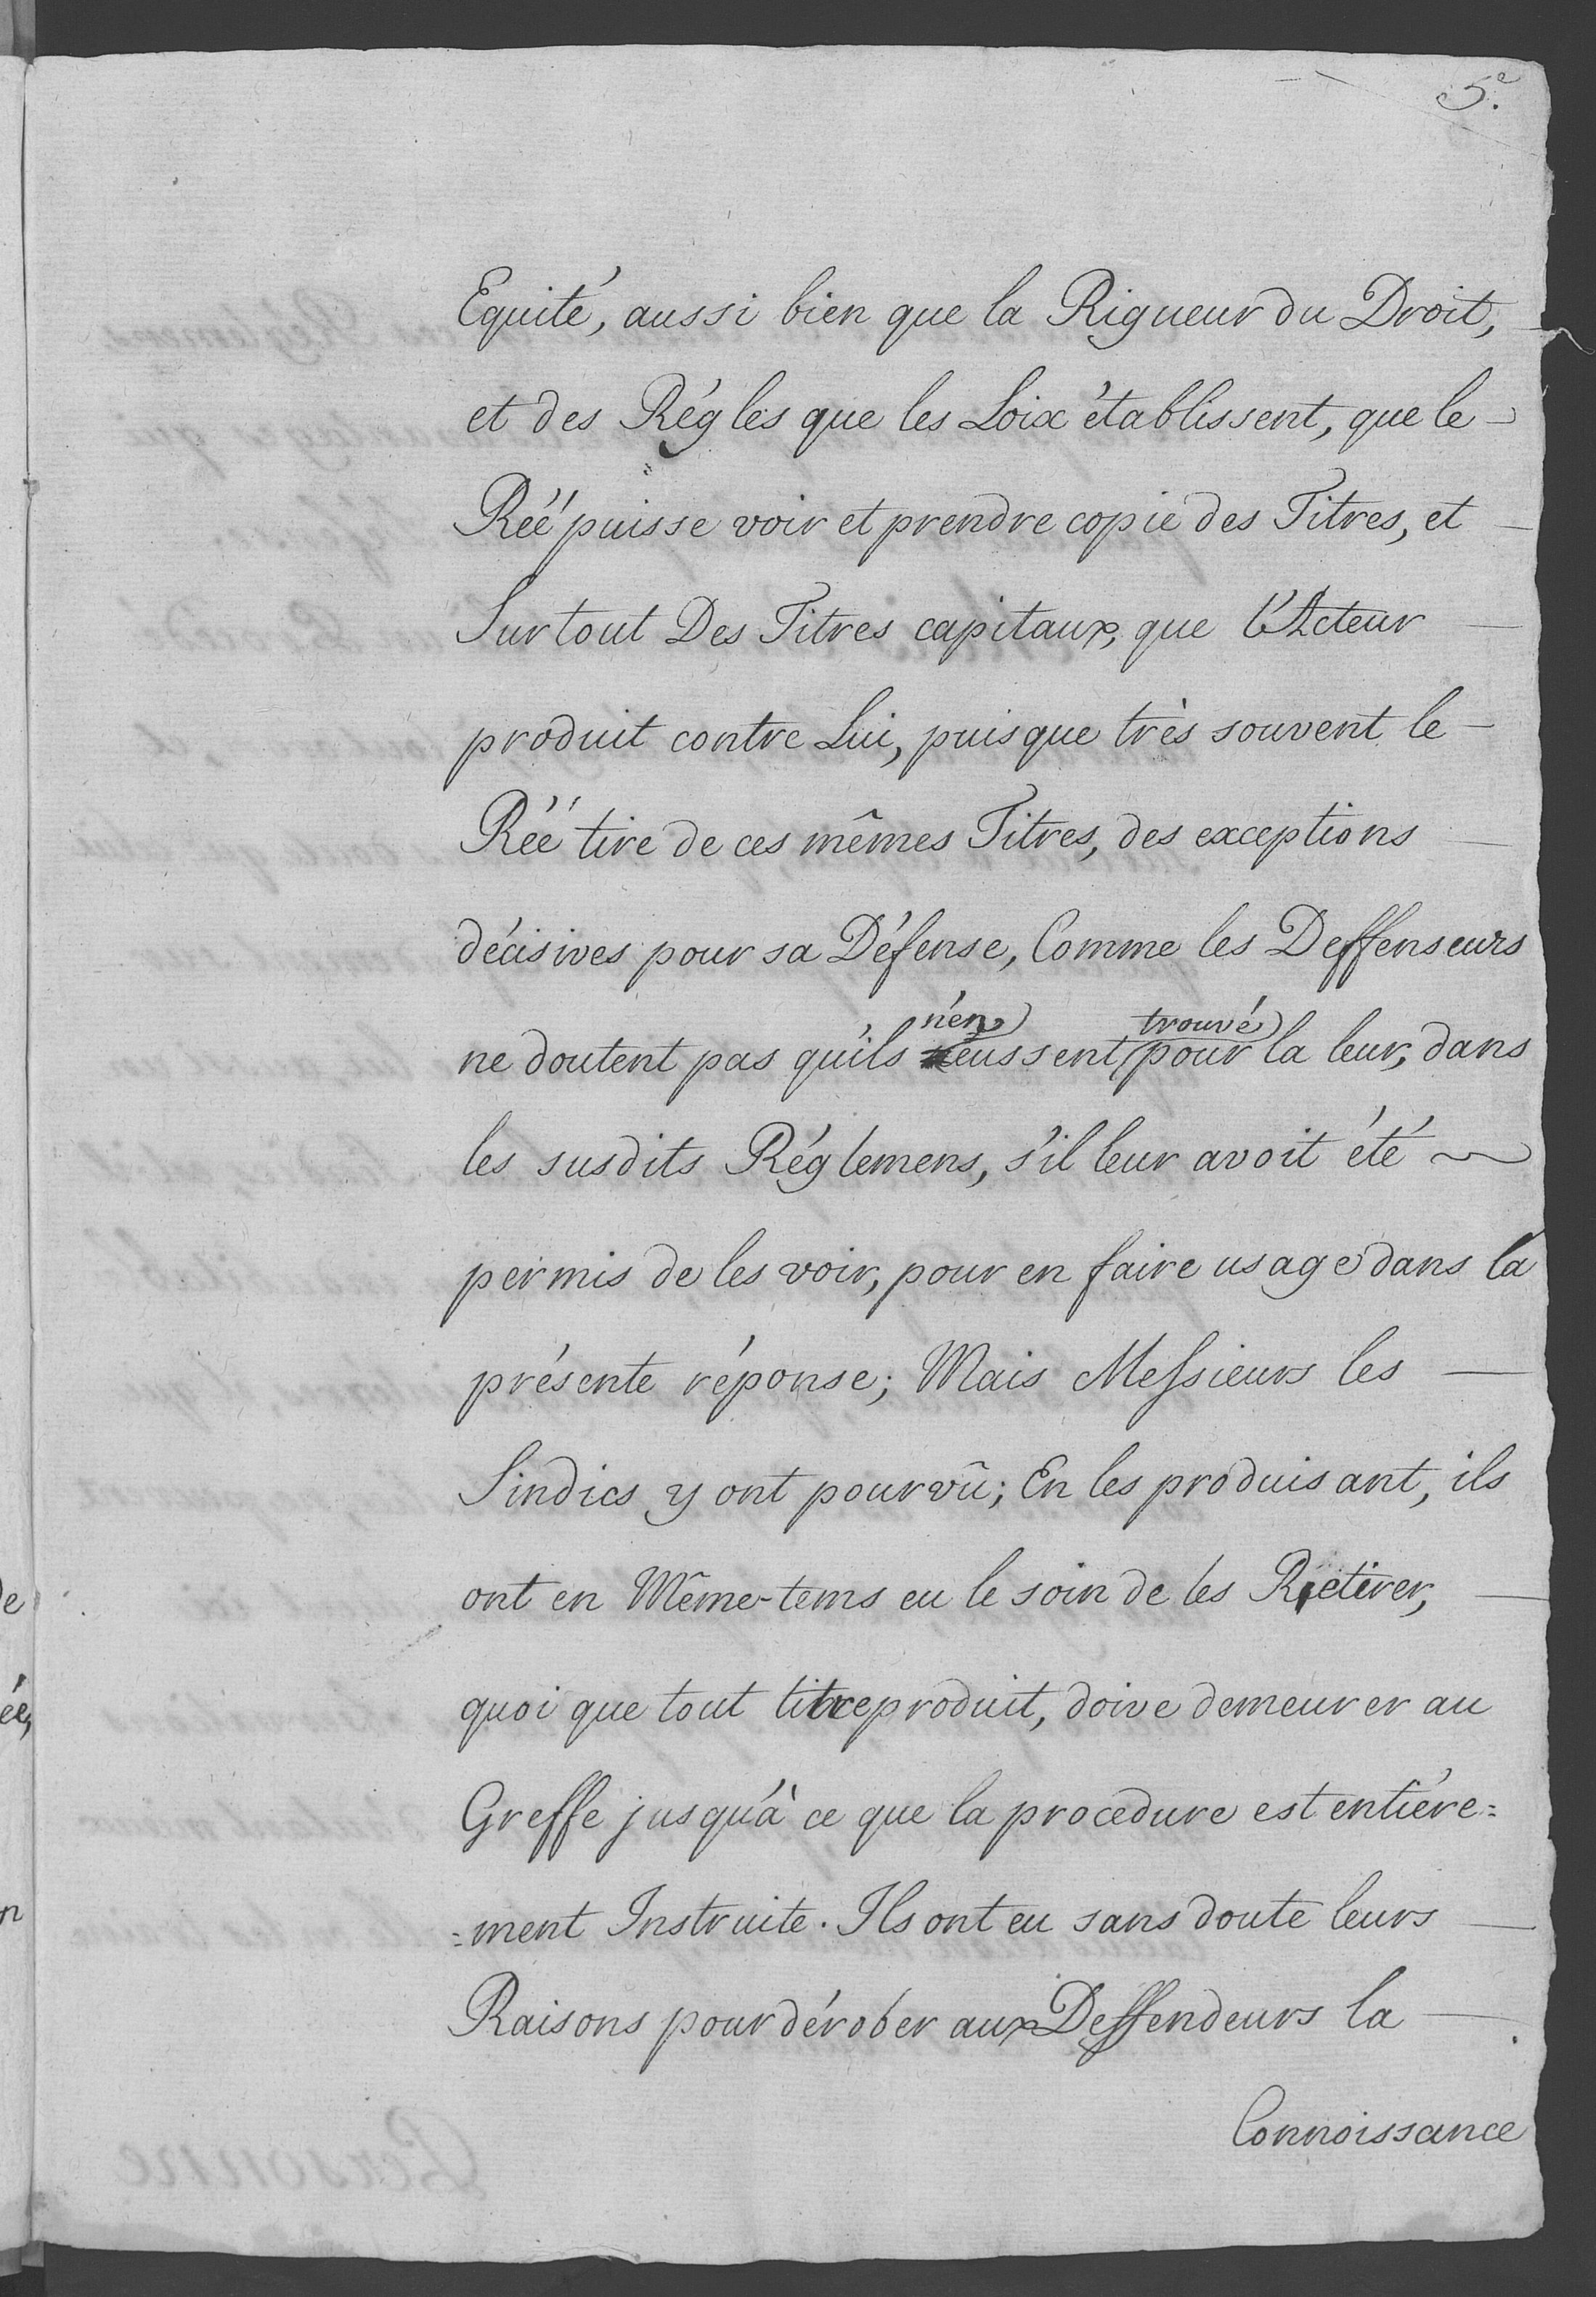 5.e
Equité, aussi bien que la Rigueur du Droit,
et des Régles que les Loix établissent, que le
Réé puisse voir et prendre copie des Titres, et
Surtout Des Titres capitaux, que l'Acteur
produit contre Lui, puisque très souvent le
Réé tire de ces mêmes Titres, des exceptions
décisives pour sa Défense, Comme les Deffenseurs
n'en trouvé
ne doutent pas qu'ils eussent pour la leur, dans
les susdits Réglemens, s'il leur avoit été
permis de les voir, pour en faire usage dans la
présente réponse; Mais Messieurs les
Sindics y ont pourvû; En les produisant, ils
ont en Même-tems eu le soin de les Retirer,
quoi que tout titre produit, doive demeurer au
Greffe jusqu'à ce que la procedure est entiére=
=ment Instruite. Ils ont eu sans doute leurs
Raisons pour dérober aux Deffendeurs la
Connoissance
de
ée,
n